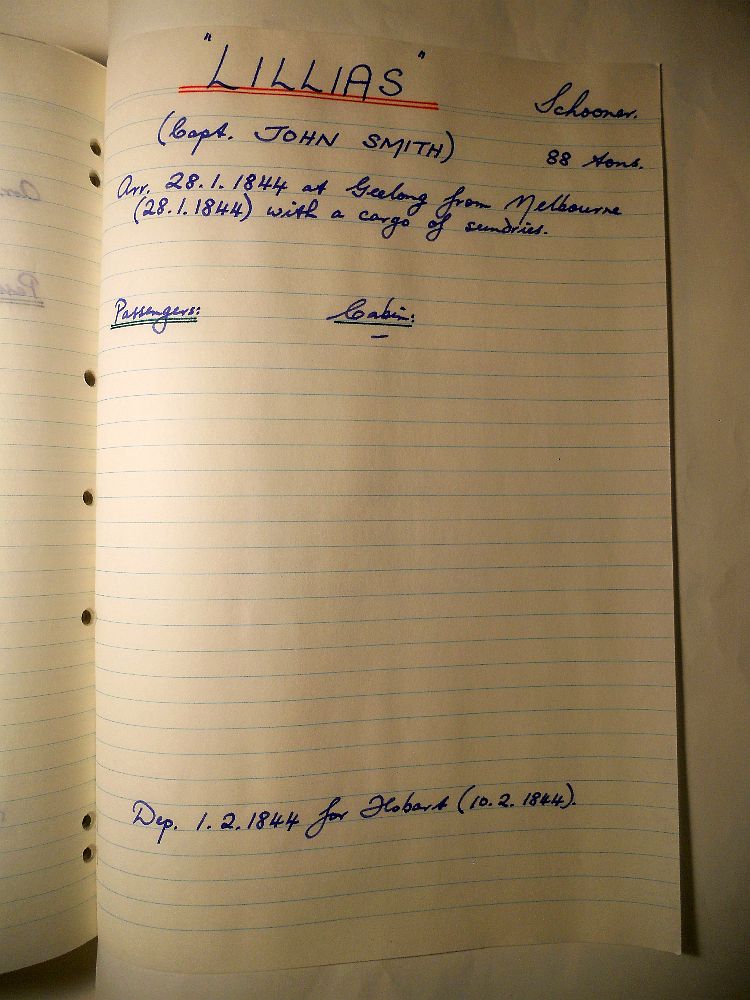 "LILLIAS"
Schooner.
(Capt. JOHN SMITH)
88 tons.
Arr. 28.1.1844 at Geelong from Melbourne
(28.1.1844) with a cargo of sundries.
Passengers: Cabin:
–
Dep. 1.2.1844 for Hobart (10.2.1844).